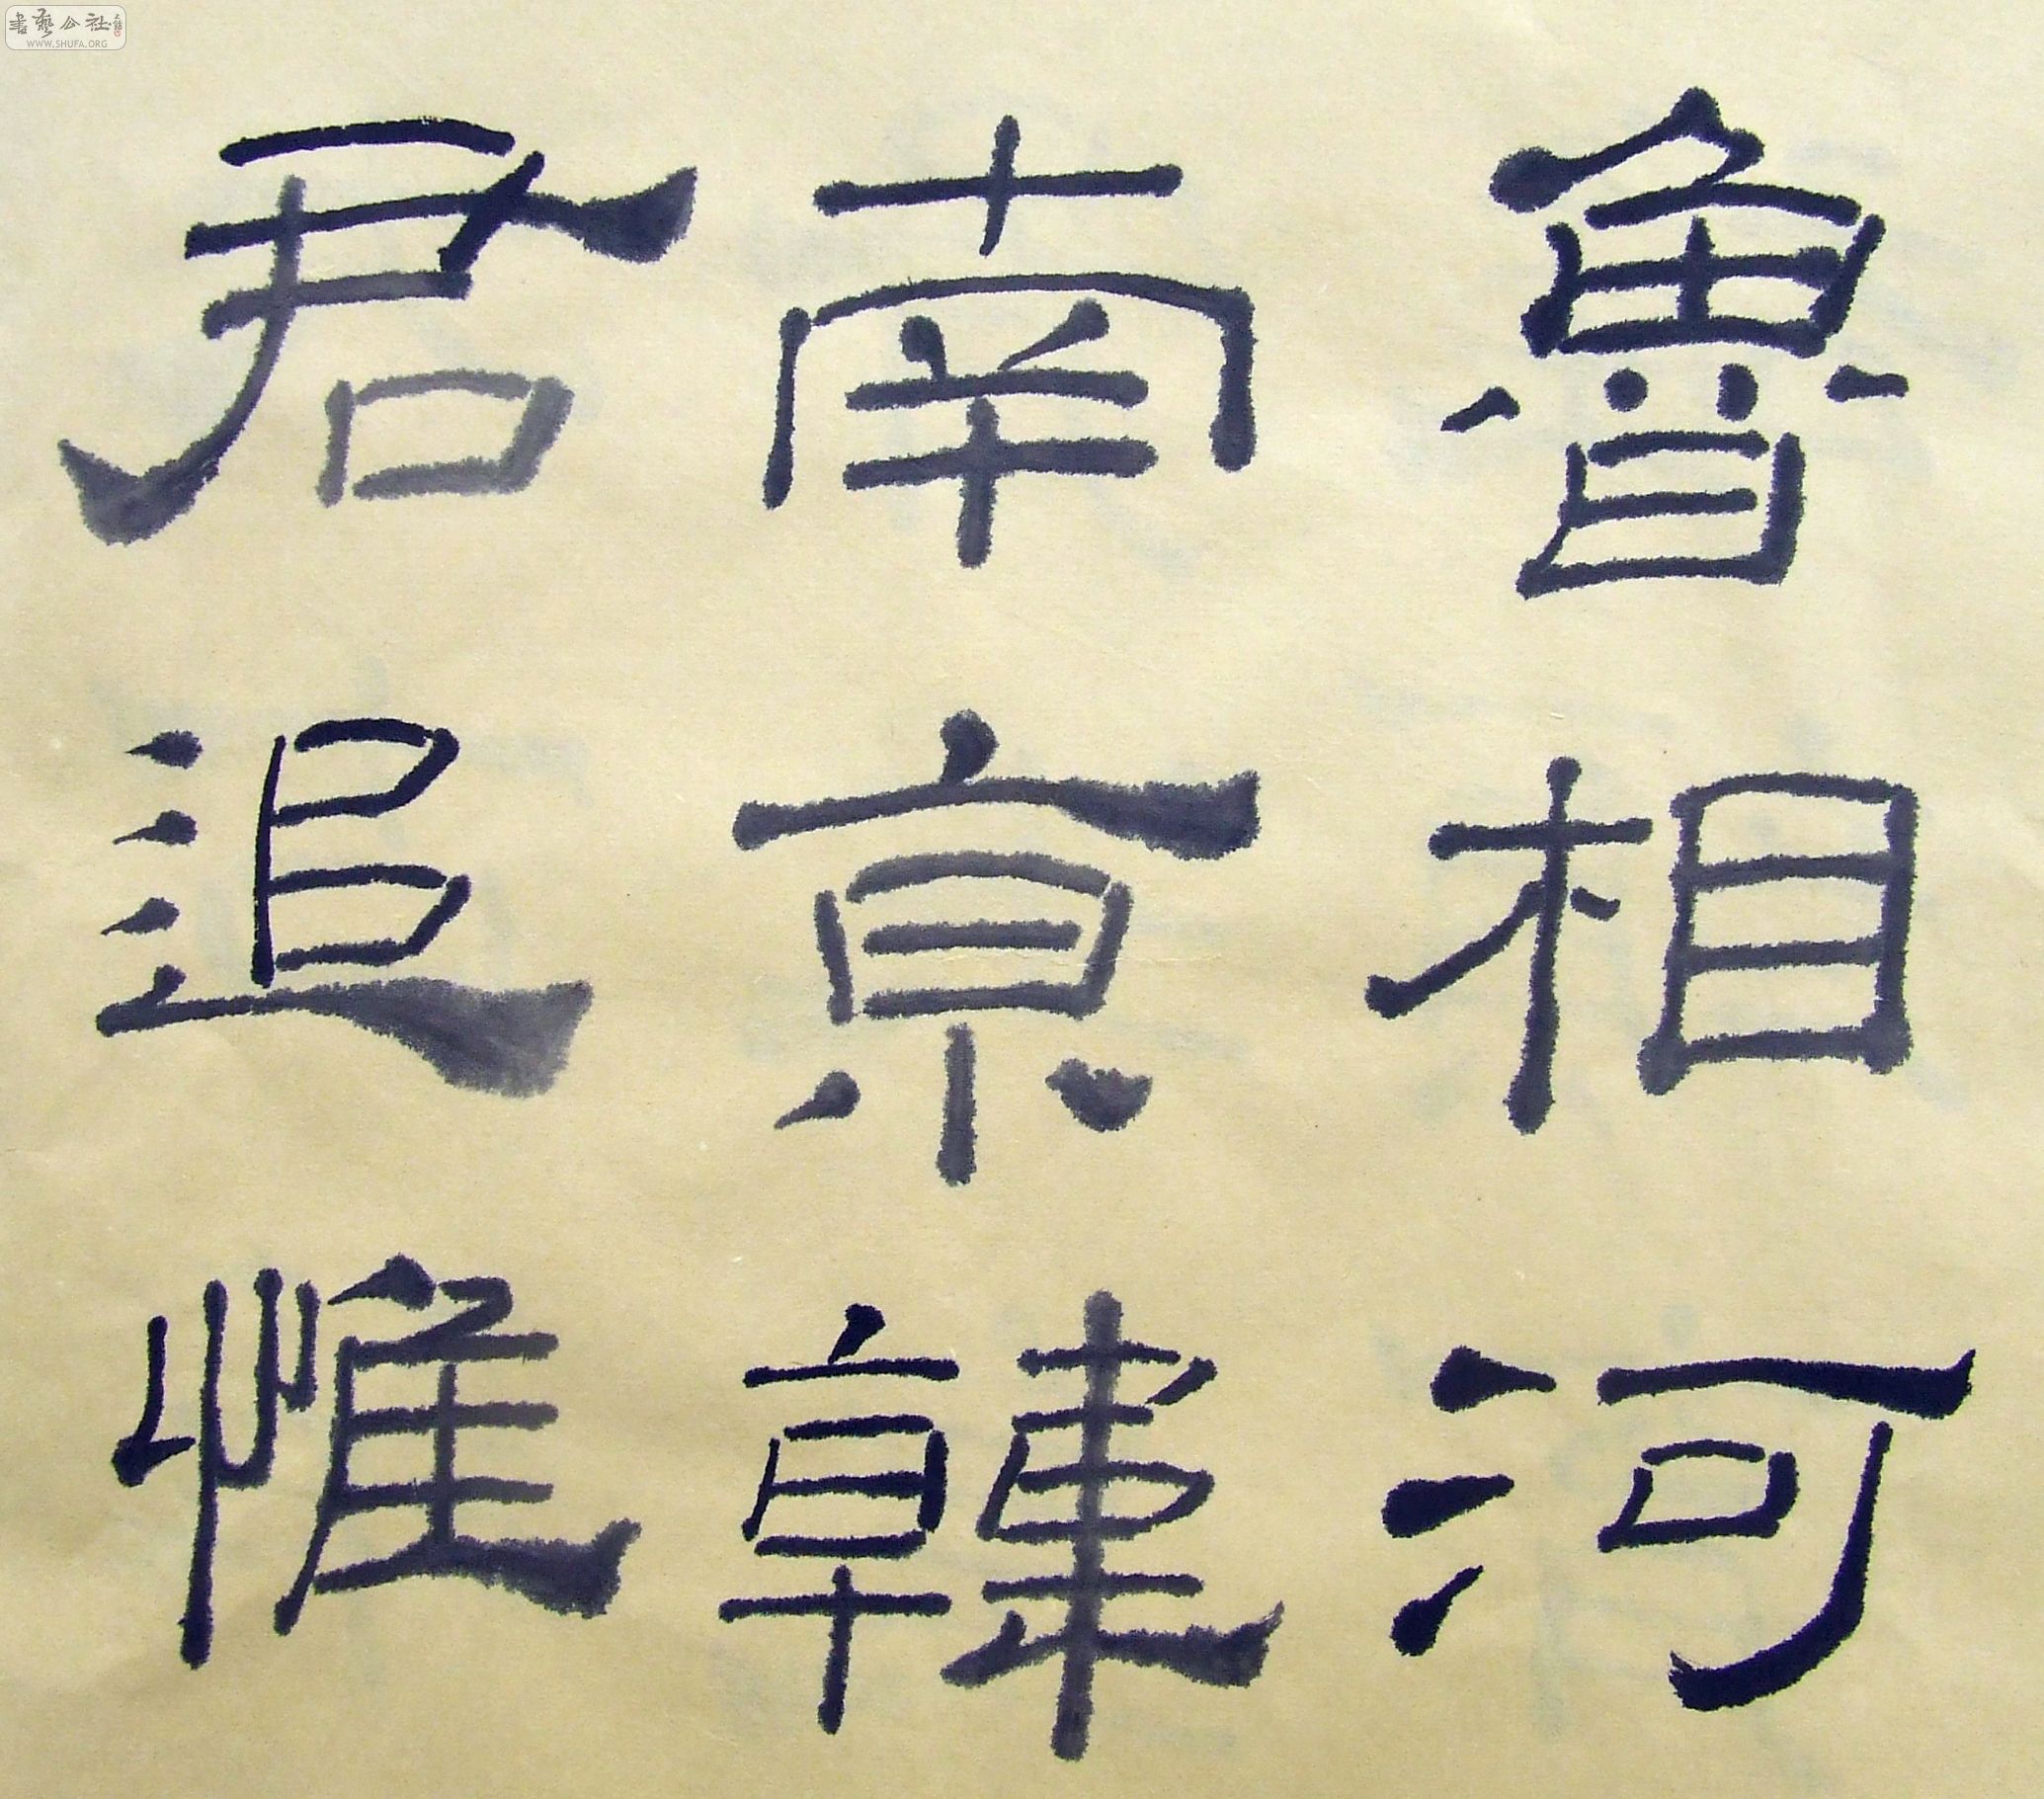 魯相河
南京韓
君追惟
書藝公社
WWW.SHUFA.ORG